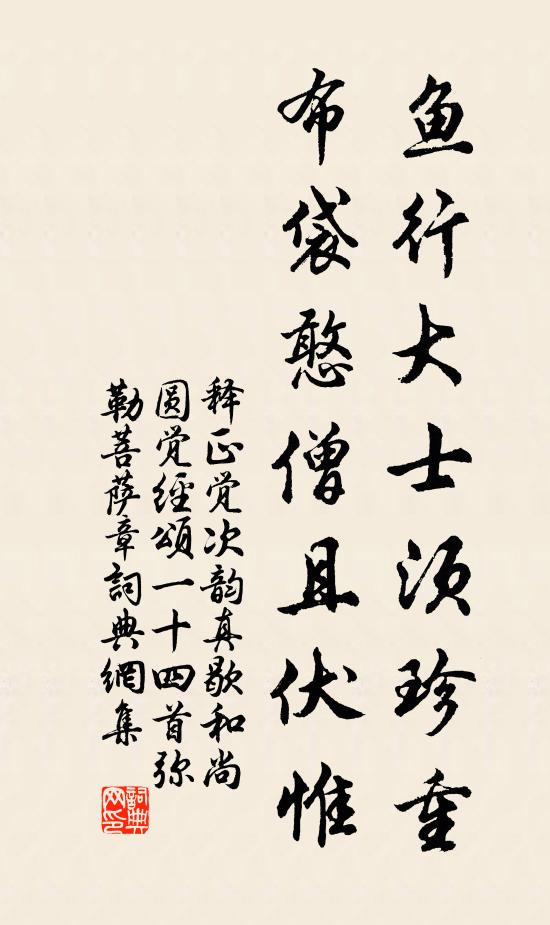 鱼行大士须珍重
布袋憨僧且伏惟
释正觉次韵真歇和尚
圆觉經頌一十四首弥
勒菩萨章詞典網集
詞典网印